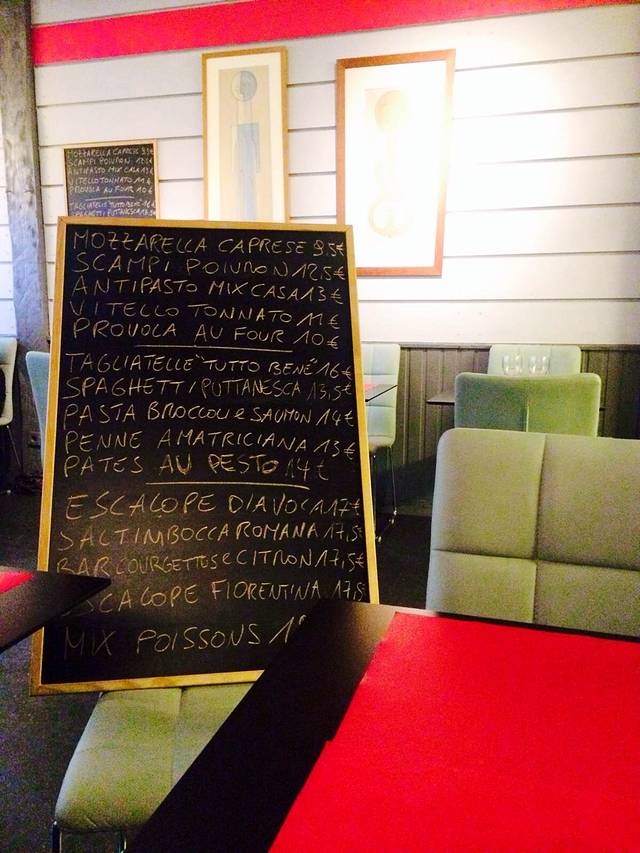 MOZZARELLA CAPRESE 9.5€
SCAMPI POIURON 12,5€
ANTIPASTO MIX CASA 13€
VITELLO TONNATO 11€
PROVOLA AU FOUR 10€
TAGLIATELLE "TUTTO BENÉ" 16€
SPAGHETTI PUTTANESCA 13,5€
PASTA BROCCOLI e SAUMON 14€
PENNE AMATRICIANA 13€
PATES AU PESTO 14€
ESCALOPE DIAVOLA 17€
SALTIMBOCCA ROMANA 17,5€
BAR COURGETTES e CITRON 17,5€
ESCALOPE FIORENTINA 17,5
MIX POISSONS
MOZZARELLA CAPRESE
SCAMPI POIURON
ANTIPASTO MIX CASA
VITELLO TONNATO 11€
PROVOLA AU FOUR 10€
TAGLIATELLE "TUTTO BENÉ"
SPAGHETTI PUTTANESCA